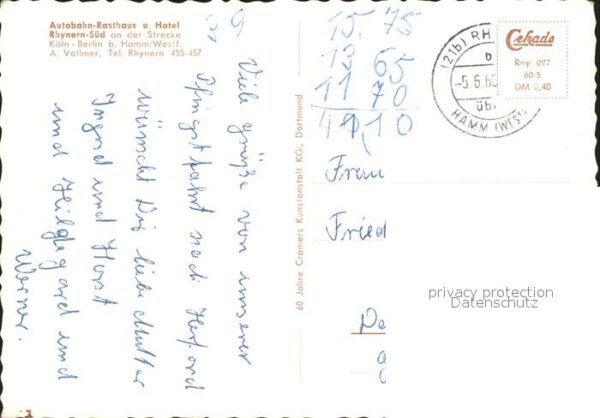 Autobahn-Rasthaus u. Hotel
Rhynern-Süd an der Strecke
Köln - Berlin b. Hamm/Westf.
A. Vollmer, Tel. Rhynern 455-457
Viele Grüße von unserer
Pfingstfahrt nach Herford
wünscht Dir liebe Mutter
Ingrid und Horst
und Hildegard und
Werner.
60 Jahre Cramers Kunstanstalt KG., Dortmund
15,75
12 65
11 70
41,10
(21b) RH
b
-5.6.6
üb
HAMM (WEST
Cekade
Rny 027
60/5
DM 0,40
Frau
Fried
privacy protection
Datenschutz